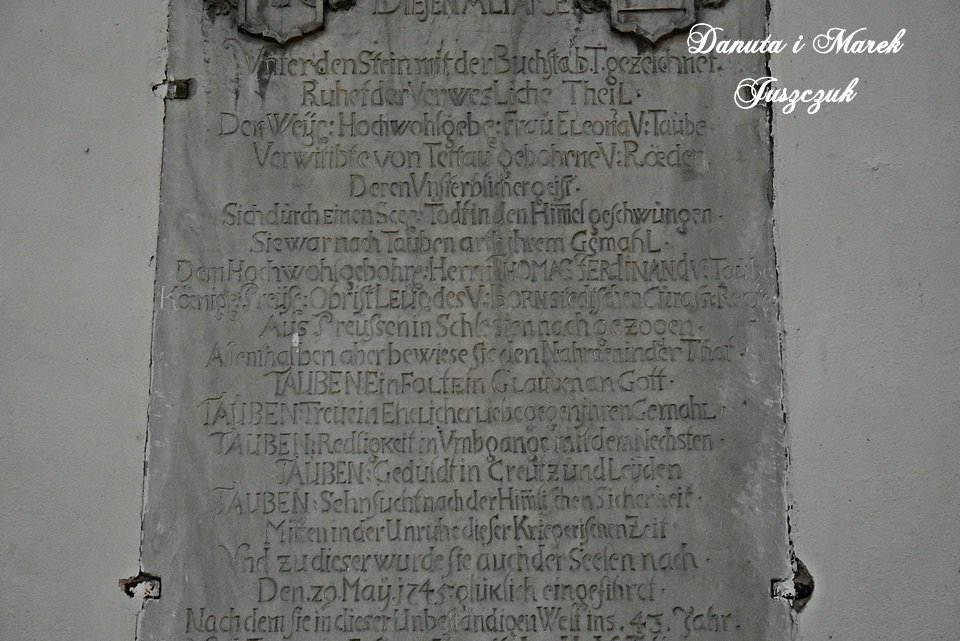 DIESEN ALTARE
Danuta i Marek
Juszczuk
Vnter den Stein mit der Buchstab T. gezeichnet.
Ruhet der Verwesliche Theil.
Den Weÿl: Hochwohlgebe: Frau Eleona V: Taube.
Verwitibte von Tettau gebohrne V: Rœder.
Deren Vnsterblicher geist.
Sich dürch einen Seeg: Todt in den Him̄el geschwüngen.
Sie war nach Tauben art ihrem Gemahl.
Dem Hochwohlgebohrn: Herrn THOMAS FERDINAND V: Taube
König: Preüß: Obrist Leüt: des V: Bornstedischen Cürass: Reg:
Aus Preussen in Schlesien nach gezogen.
Allenthalben aber bewiese sie den Nahmen in der That.
TAUBEN Einfalt ein Glauben an Gott.
TAUBEN: Treue in Ehelicher Liebe gegen jhren Gemahl.
TAUBEN: Redligkeit in Vmbgange mit dem Nechsten.
TAUBEN: Geduldt in Creutz und Leÿden
TAUBEN: Sehnsucht nach der Him̄lischen Sicherheit.
Mitten in der Unruhe dieser Kriegerischen Zeit
Vnd zu dieser wurde sie auch der Seelen nach.
Den. 29. Maÿ. 1745. glüklich eingeführt.
Nach dem sie in dieser Unbeständigen Welt ins. 43. Jahr.